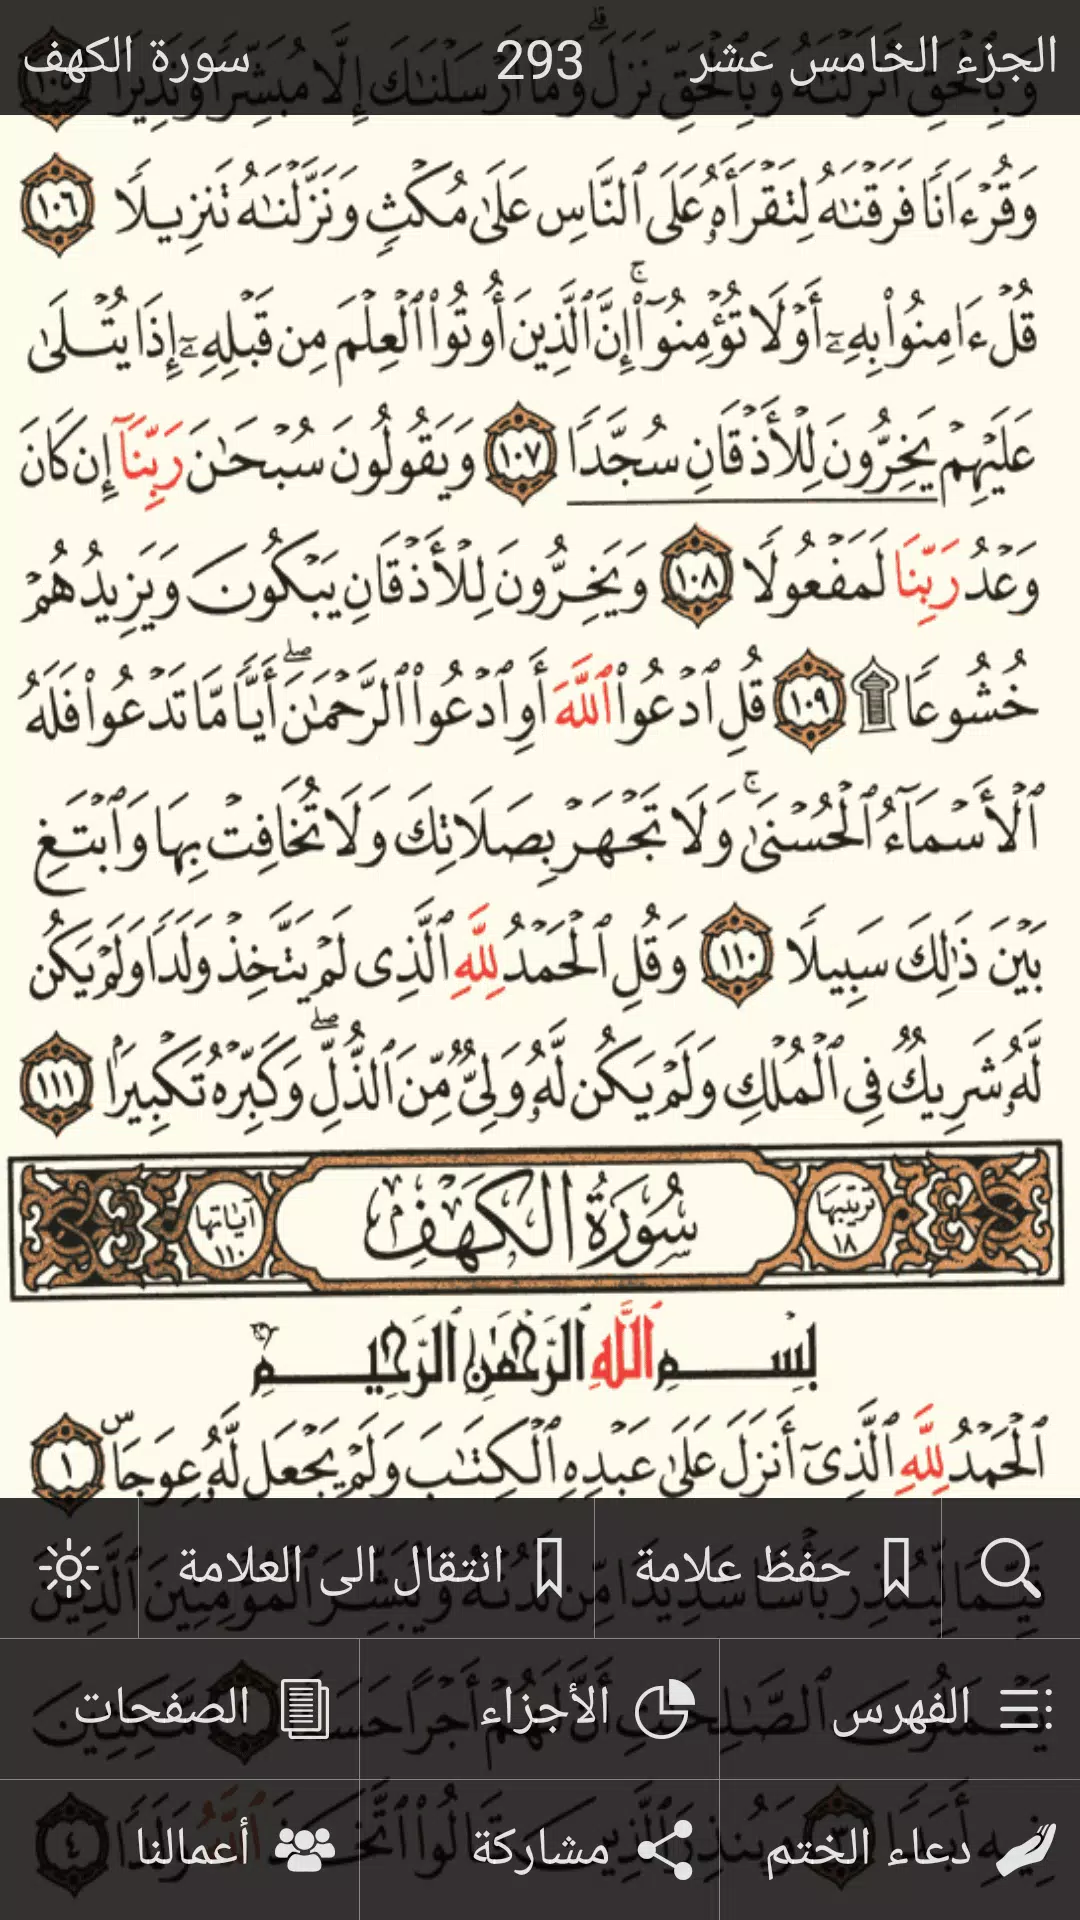 الجزء الخامس عشر 293 سورة الكهف
وَبِٱلْحَقِّ أَنزَلْنَـٰهُ وَبِٱلْحَقِّ نَزَلَ ۗ وَمَآ أَرْسَلْنَـٰكَ إِلَّا مُبَشِّرًا وَنَذِيرًا ١٠٥
وَقُرْءَانًا فَرَقْنَـٰهُ لِتَقْرَأَهُۥ عَلَى ٱلنَّاسِ عَلَىٰ مُكْثٍ وَنَزَّلْنَـٰهُ تَنزِيلًا ١٠٦
قُلْ ءَامِنُوا۟ بِهِۦٓ أَوْ لَا تُؤْمِنُوٓا۟ ۚ إِنَّ ٱلَّذِينَ أُوتُوا۟ ٱلْعِلْمَ مِن قَبْلِهِۦٓ إِذَا يُتْلَىٰ
عَلَيْهِمْ يَخِرُّونَ لِلْأَذْقَانِ سُجَّدًا ١٠٧ وَيَقُولُونَ سُبْحَـٰنَ رَبِّنَآ إِن كَانَ
وَعْدُ رَبِّنَا لَمَفْعُولًا ١٠٨ وَيَخِرُّونَ لِلْأَذْقَانِ يَبْكُونَ وَيَزِيدُهُمْ
خُشُوعًا ۩ ١٠٩ قُلِ ٱدْعُوا۟ ٱللَّهَ أَوِ ٱدْعُوا۟ ٱلرَّحْمَـٰنَ ۖ أَيًّا مَّا تَدْعُوا۟ فَلَهُ
ٱلْأَسْمَآءُ ٱلْحُسْنَىٰ ۚ وَلَا تَجْهَرْ بِصَلَاتِكَ وَلَا تُخَافِتْ بِهَا وَٱبْتَغِ
بَيْنَ ذَٰلِكَ سَبِيلًا ١١٠ وَقُلِ ٱلْحَمْدُ لِلَّهِ ٱلَّذِى لَمْ يَتَّخِذْ وَلَدًا وَلَمْ يَكُن
لَّهُۥ شَرِيكٌ فِى ٱلْمُلْكِ وَلَمْ يَكُن لَّهُۥ وَلِىٌّ مِّنَ ٱلذُّلِّ ۖ وَكَبِّرْهُ تَكْبِيرًۢا ١١١
ترتيبها ١٨ سُورَةُ الكَهْفِ آياتها ١١٠
بِسْمِ ٱللَّهِ ٱلرَّحْمَـٰنِ ٱلرَّحِيمِ
ٱلْحَمْدُ لِلَّهِ ٱلَّذِىٓ أَنزَلَ عَلَىٰ عَبْدِهِ ٱلْكِتَـٰبَ وَلَمْ يَجْعَل لَّهُۥ عِوَجَا ۜ ١
قَيِّمًا لِّيُنذِرَ بَأْسًا شَدِيدًا مِّن لَّدُنْهُ وَيُبَشِّرَ ٱلْمُؤْمِنِينَ ٱلَّذِينَ
حفظ علامة انتقال الى العلامة
يَعْمَلُونَ ٱلصَّـٰلِحَـٰتِ أَنَّ لَهُمْ أَجْرًا حَسَنًا ٢ مَّـٰكِثِينَ
الفهرس الأجزاء الصفحات
فِيهِ أَبَدًا ٣ وَيُنذِرَ ٱلَّذِينَ قَالُوا۟ ٱتَّخَذَ ٱللَّهُ وَلَدًا ٤
دعاء الختم مشاركة أعمالنا